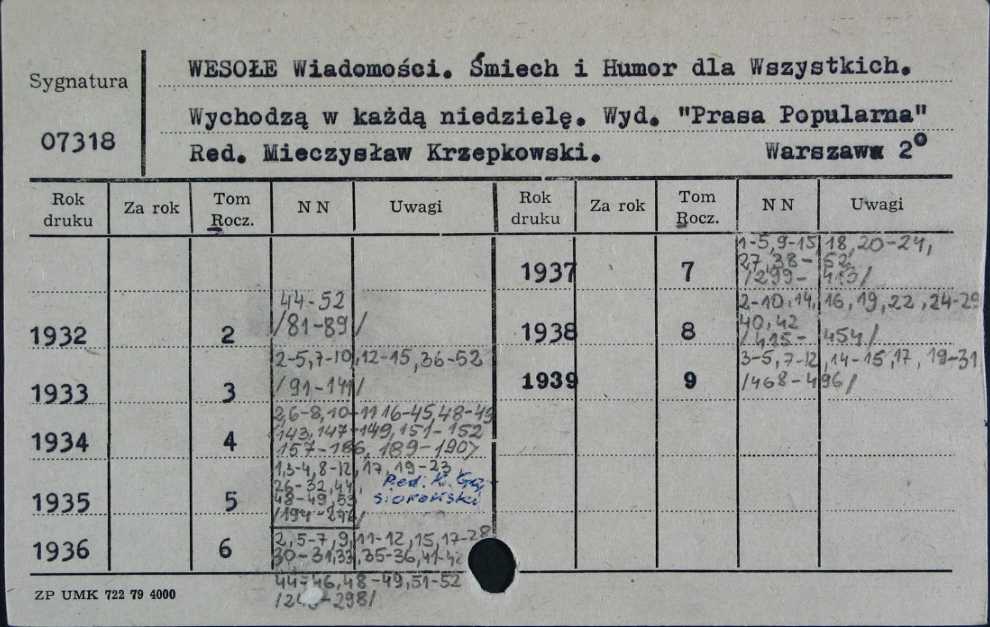 WESOŁE Wiadomości. Śmiech i Humor dla Wszystkich.
Sygnatura
Wychodzą w każdą niedzielę. Wyd. "Prasa Popularna"
07318
Red. Mieczysław Krzepkowski. Warszawa 2°
Rok druku Za rok Tom Rocz. NN Uwagi Rok druku Za rok Tom Rocz. NN Uwagi
44-52
1932 2 /81-89/
2-5,7-10,12-15,36-52
1933 3 /91-141/
2,6-8,10-11 16-45,48-49
143,147-149,151-152
1934 4 157-186, 189-190/
1,3-4,8-12,17,19-23
26-32,44, Red. K. Gą-
1935 5 48-49,53 siorowski
/194-246/
2,5-7,9,11-12,15,17-28
1936 6 30-31,33,35-36,41-42
44-46,48-49,51-52
-298/
1-5,9-15,18,20-24,
1937 7 27,38-52
/299-413/
2-10,14,16,19,22,24-29
1938 8 40,42
/415-454/
3-5,7-12,14-15,17,19-31
1939 9 /468-496/
ZP UMK 722 79 4000